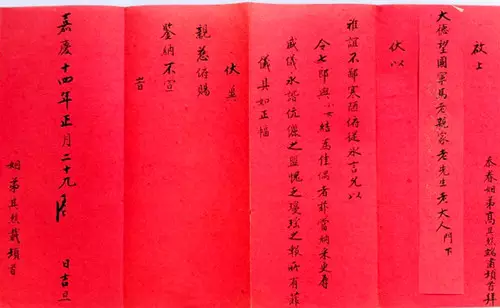 啟上
忝眷姻弟
頓首拜
大德望國學馬老親家老先生老大人門下
伏以
雅誼不鄙寒陋俯從永言兄以
令七郎與小女結為佳偶者菲當納采更辱
盛儀永諧伉儷之盟愧乏瓊瑤之報所有菲
儀具如正幅
伏冀
親慈俯賜
鑒納不宣
昔
嘉慶十四年正月二十九
日吉旦
姻弟
載頓首